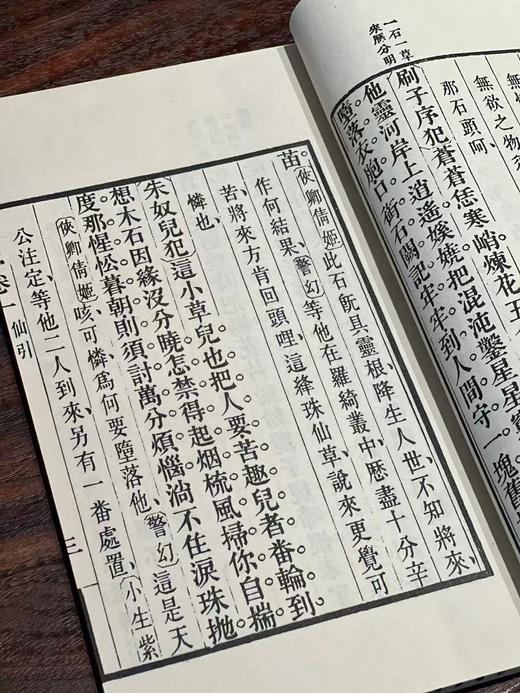 一石一草
來歷分明
無欲之物
那石頭呵、
刷子序犯〕蒼蒼恁寒峭煉花五
他靈河岸上逍遙挨
口銜石闕記牢牢到人間守一塊舊
苗。〔俠卿倩姬〕此石旣具靈根降生人世、不知將來、
作何結果、〔警幻〕等他在羅綺叢中、歷盡十分辛
苦、將來方肯回頭哩、這絳珠仙草、說來更覺可
憐也、
朱奴兒犯〕這小草兒也把人要苦趣兒者番輪到。
想木石因緣沒分曉。怎禁得起烟梳風掃。你自揣
度。那惺忪暮朝。則須討萬分煩惱。淌不住淚珠拋。
〔俠卿倩姬〕咳可憐爲何要墮落他、〔警幻〕這是天
公注定、等他二人到來、另有一番處置、〔小生紫
卷一 仙引 三